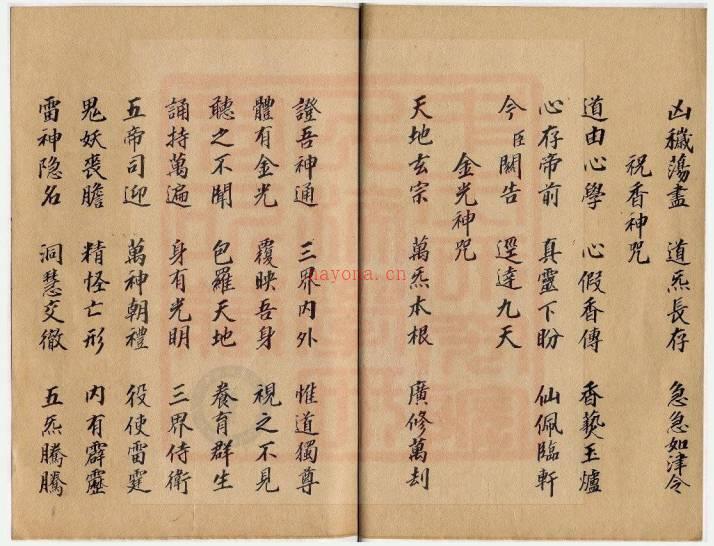 凶穢蕩盡 道炁長存 急急如津令
祝香神咒
道由心學 心假香傳 香爇玉爐
心存帝前 真靈下盼 仙佩臨軒
今臣關告 逕達九天
金光神咒
天地玄宗 萬炁本根 廣修萬刼
證吾神通 三界内外 惟道獨尊
體有金光 覆映吾身 視之不見
聽之不聞 包羅天地 養育群生
誦持萬遍 身有光明 三界侍衛
五帝司迎 萬神朝禮 役使雷霆
鬼妖喪膽 精怪亡形 内有霹靂
雷神隐名 洞慧交徹 五炁騰騰
hayona.cn